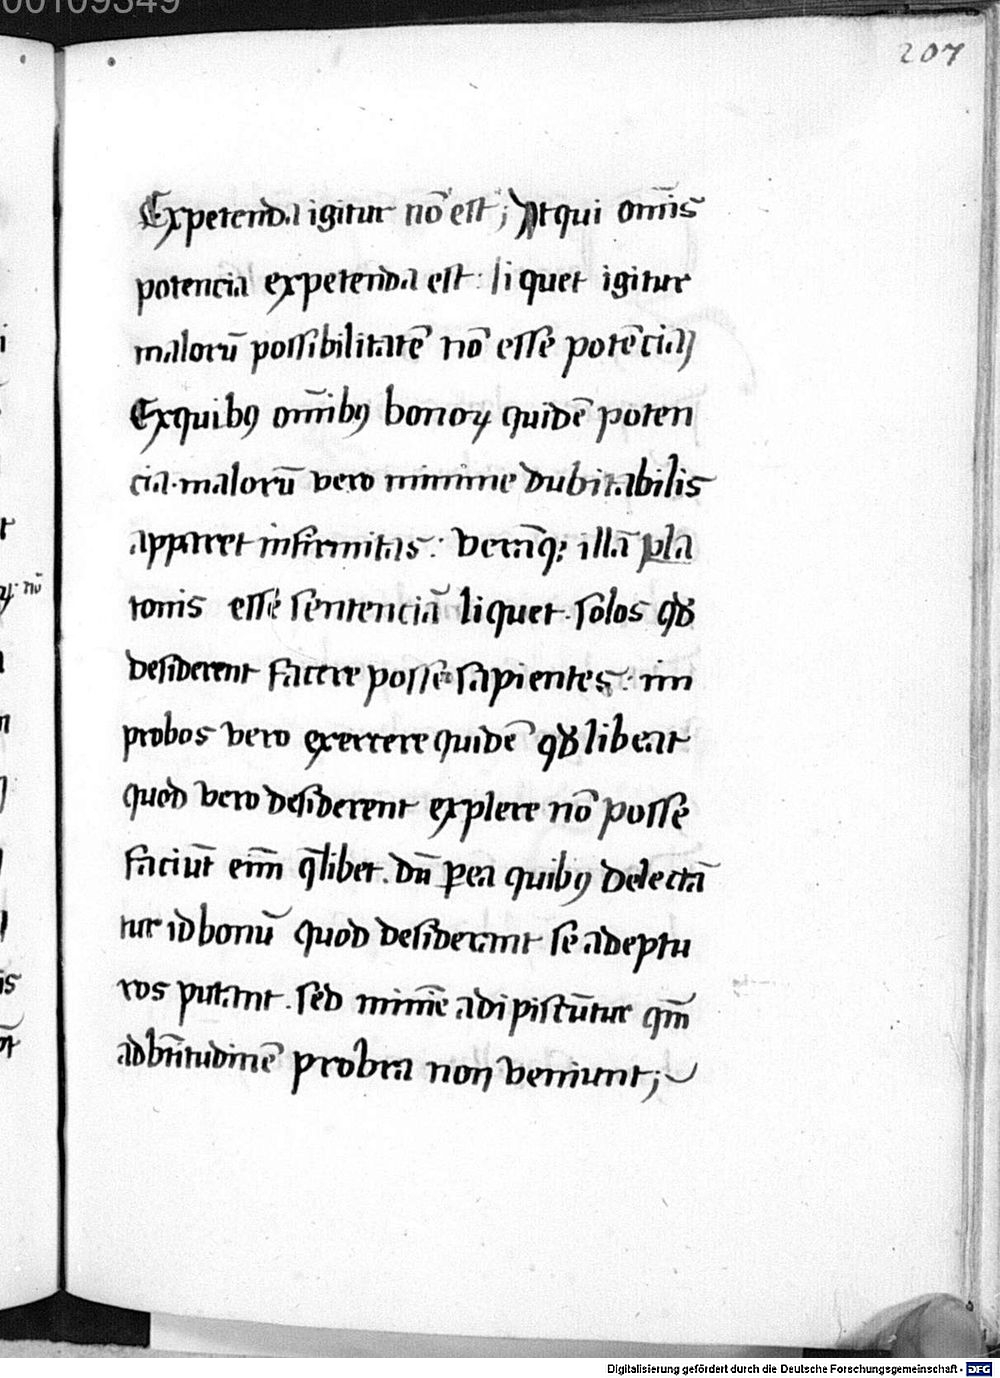 00109349
207
Expetenda igitur nō est; Atqui om̄is
potencia expetenda est: liquet igitur
malorū possibilitatē nō esse potēciaȝ
Exquibꝰ om̄ibꝰ bonoꝝ quidē poten
cia. malorū vero minime dubitabilis
apparet infirmitas: veraq̄; illā pla
tonis esse sentenciā liquet. solos qđ
desiderent facere posse sapientes: im
probos vero exercere quidē qđ libeat
quod vero desiderent explere nō posse
faciūt eim̄ q̄libet. dū ꝑ ea quibꝰ delectā
tur id bonū quod desiderant se adeptu
ros putant. sed minīe adipiscūtur qm̄
ad btītudinē probra non veniunt;
nū
Digitalisierung gefördert durch die Deutsche Forschungsgemeinschaft - DFG